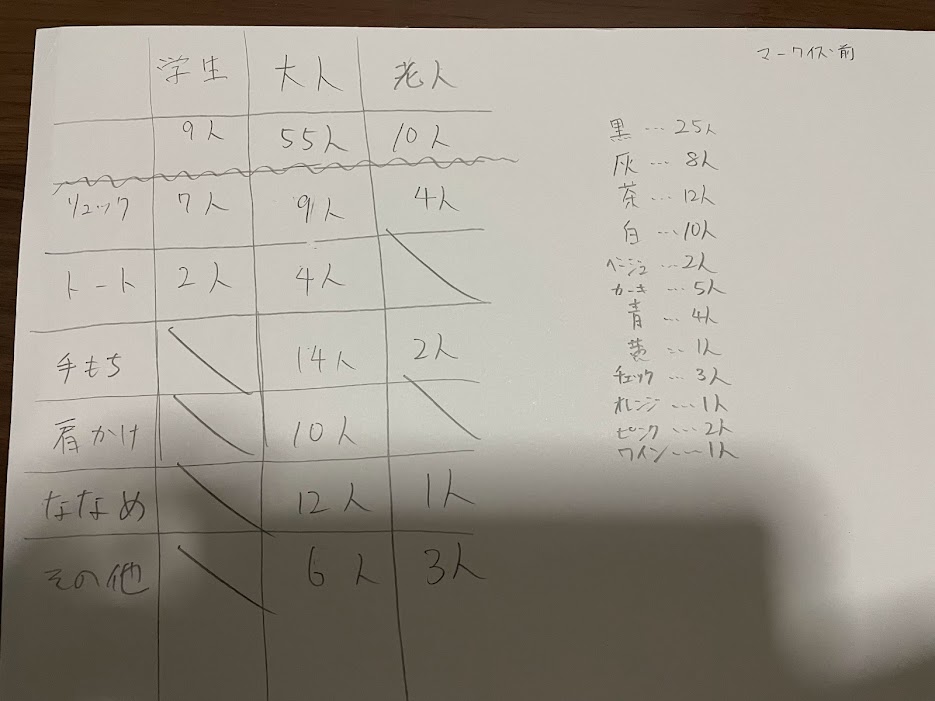 学生 大人 老人
9人 55人 10人
リュック 7人 9人 4人
トート 2人 4人
手もち 14人 2人
肩かけ 10人
ななめ 12人 1人
その他 6人 3人
マークイズ前
黒…25人
灰…8人
茶…12人
白…10人
ベージュ…2人
カーキ…5人
青…4人
黄…1人
チェック…3人
オレンジ…1人
ピンク…2人
ワイン…1人